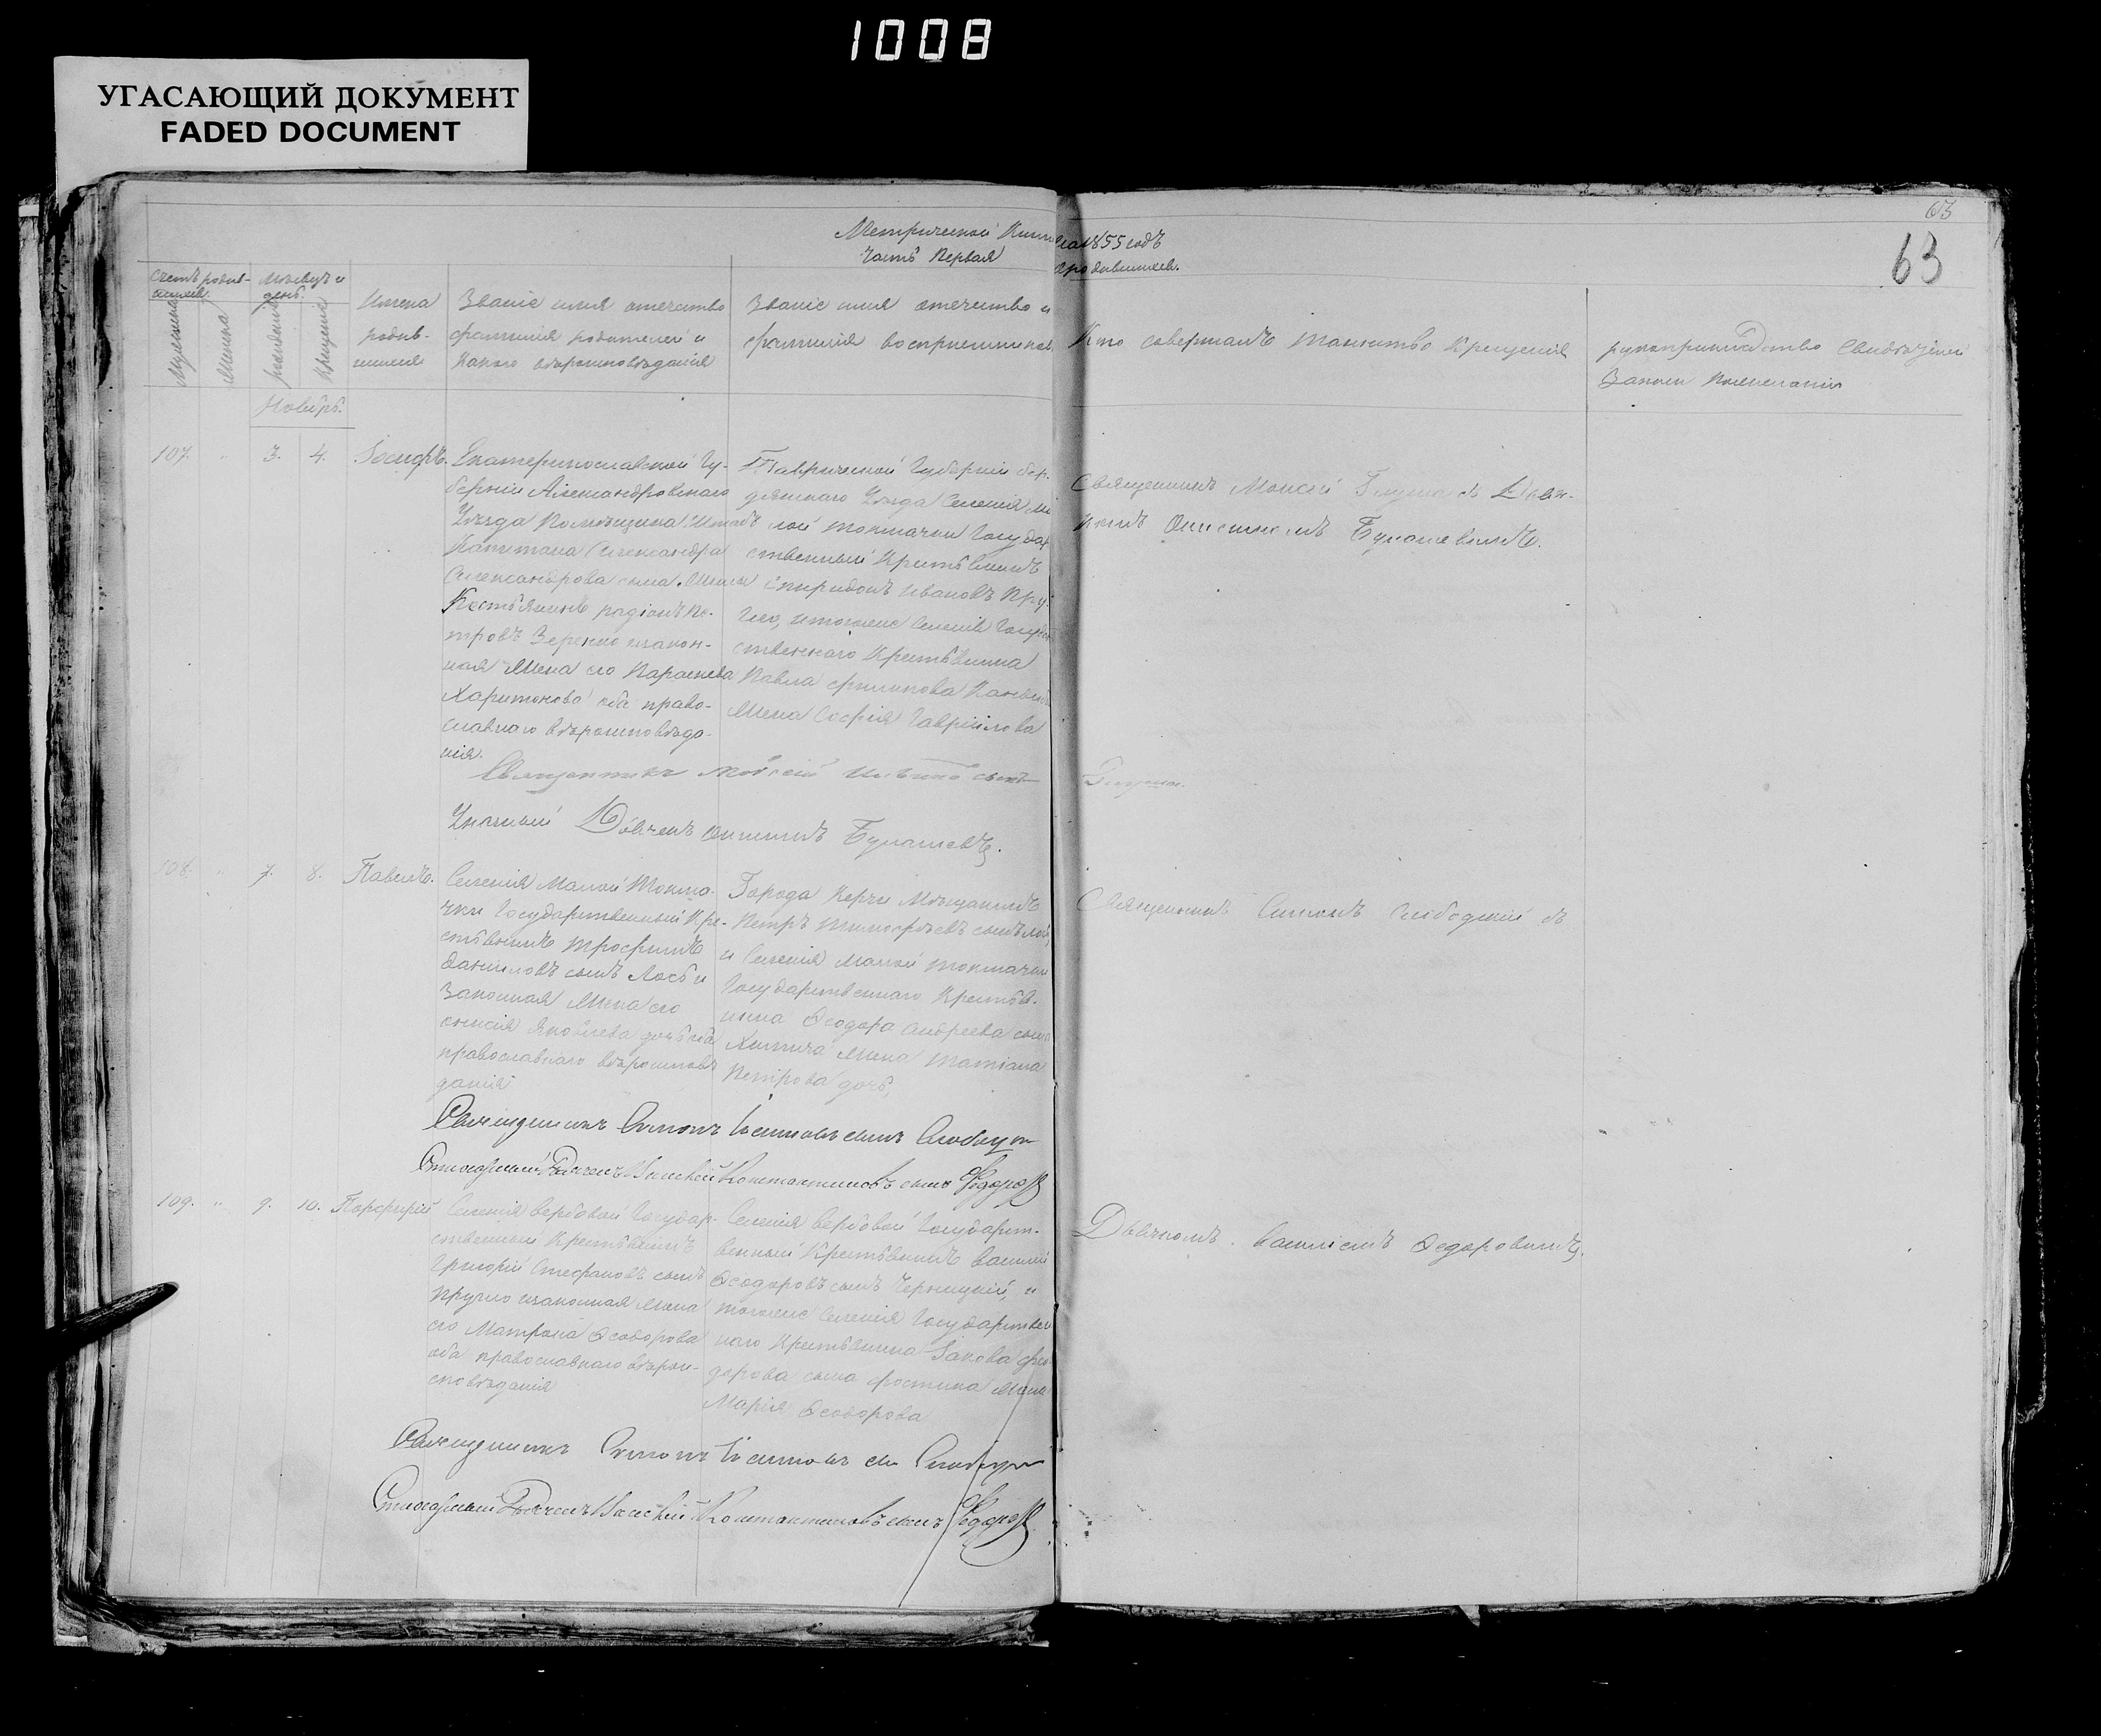 1008
УГАСАЮЩИЙ ДОКУМЕНТ
FADED DOCUMENT
63
63
Метрической Книги на 1855 годъ
Часть Первая о родившихся.
Счетъ родив-
шихся.
Мѣсяцъ и
день.
Мужеска
Женска
рожденія
крещенія
Имена
родив-
шихся
Званіе имя отечество
фамилія родителей и
какого вѣроисповѣданія
Званіе имя отечество и
фамилія воспріемниковъ
Кто совершалъ таинство крещенія
рукоприкладство свидѣтелей
записи по желанію
Ноябрь.
107. " 3. 4. Іосифъ.
Екатеринославской Гу-
берніи Александровскаго
Уѣзда Помѣщика Штабъ
Капитана Александра
Александрова сына
Крестьянинъ радіонъ Пе-
тровъ Зеренко изакон-
ная Жена его Параскева
Харитонова оба право-
славнаго вѣроисповѣда-
нія.
Таврической Губерніи бер-
дянскаго Уѣзда Селенія Ма
лой токмачки Государ
ственный Крестьянинъ
Спиридонъ Ивановъ Пру-
гло, итогоже Селенія Государ
ственнаго Крестьянина
Павла филипова
Жена Софія Гавріилова
Священникъ Моисей Глушка съ Дьяч-
комъ Онисимомъ Булашевымъ.
Священникъ Моѵсей сынъ Глушка.
Указный Дьячекъ Онисимъ Булашевъ.
108. " 7. 8. Павелъ.
Селенія Малой Токма-
чки Государственный Кре-
стьянинъ трофимъ
даниловъ сынъ Лось и
Законная Жена его
ксенія Яковлева дочь оба
православнаго вѣроисповѣ
данія
Города Керчи Мѣщанинъ
Петръ тимофѣевъ сынъ
и Селенія малой токмачки
Государственнаго Крестья-
нина Ѳеодора Андреева сына
Жена Татіана
Петрова дочь,
Священникъ Симонъ Слободскій съ
Священникъ Симонъ сынъ
Дьячекъ Василій Константиновъ сынъ Ѳедоровъ
109. " 9. 10. Порфирій
Селенія Вербовой Государ-
ственный Крестьянинъ
Григорій Стефановъ сынъ
Пругло изаконная Жена
его Матрона Ѳеодорова
оба православнаго вѣрои-
сповѣданія
Селенія Вербовой Государст-
венный Крестьянинъ Василій
Ѳеодоровъ сынъ Черницкій, и
тогоже Селенія Государствен
наго Крестьянина Іакова фео
дорова сына Жена
Марія Ѳеодорова
Дьячкомъ Василіемъ Ѳедоровымъ.
Священникъ Симонъ
Дьячекъ Василій Константиновъ сынъ Ѳедоровъ